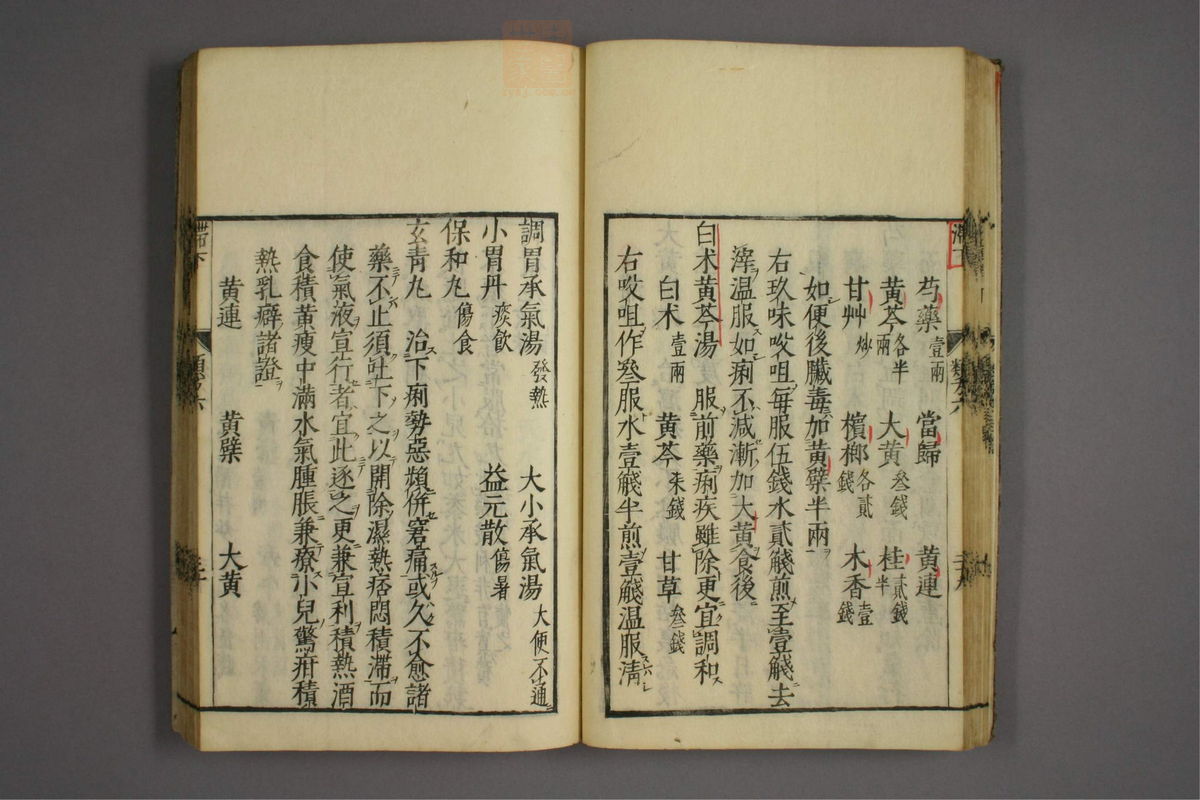 芍藥壹兩 當歸 黃連
黃芩各半兩 大黃叁錢 桂貳錢半
甘艸炒 檳榔各貳錢 木香壹錢
如便後臟毒加黃櫱半兩
右玖味㕮咀每服伍錢水貳觥煎至壹觥去
滓温服如痢不减漸加大黃食後
白术黃芩湯 服前藥痢疾雖除更宜調和
白术壹兩 黃芩柒錢 甘草叁錢
右㕮咀作叄服水壹觥半煎壹觥温服清
調胃承氣湯發熱 大小承氣湯大便不通
小胃丹痰飲 益元散傷暑
保和丸傷食
玄青丸 治下痢勢惡頻併窘痛或久不愈諸
藥不止須吐下之以開除濕熱痞悶積滯而
使氣液宣行者宜此逐之更兼宣利積熱酒
食積黃瘦中滿水氣腫脹兼療小兒驚疳積
熱乳癖諸證
黃連 黃櫱 大黃